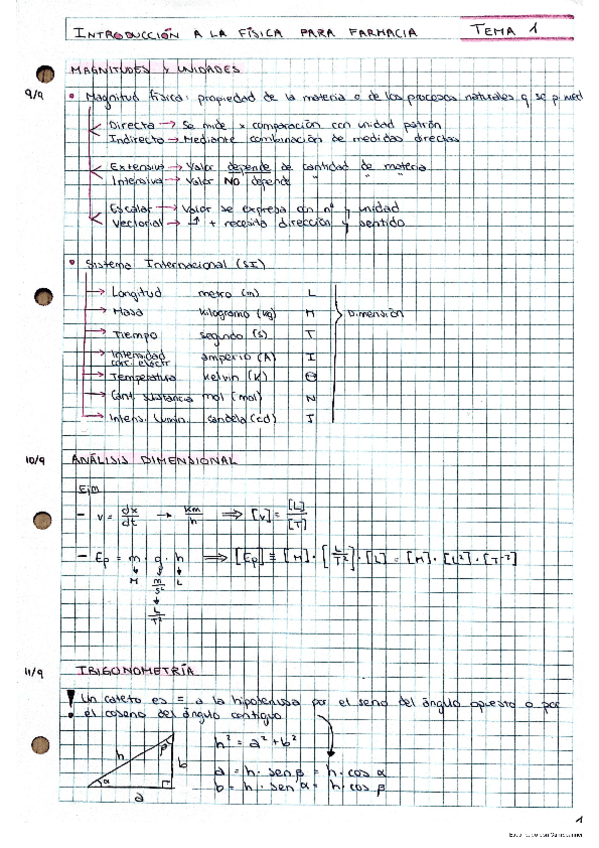 INTRODUCCIÓN A LA FÍSICA PARA FARMACIA
TEMA 1
MAGNITUDES Y UNIDADES
9/9
• Magnitud física: propiedad de la materia o de los procesos naturales q se p med
Directa → Se mide x comparación con unidad patrón
Indirecto → Mediante combinación de medidas directas
Extensiva → Valor depende de cantidad de materia
Intensiva → Valor NO depende " " "
Escalar → Valor se expresa con nº y unidad
Vectorial → ↑ + necesita dirección y sentido
• Sistema Internacional (SI)
→ Longitud metro (m) L
→ Masa kilogramo (kg) M Dimensión
→ Tiempo segundo (s) T
→ Intensidad corr. electr amperio (A) I
→ Temperatura kelvin (K) Θ
→ Cant. sustancia mol (mol) N
→ Intens. lumin. candela (cd) J
10/9
ANÁLISIS DIMENSIONAL
Ejm
- v = dx/dt → km/h ⟹ [v] = [L]/[T]
- Ep = m · g · h ⟹ [Ep] ≡ [M] · [L/T²] · [L] = [M] · [L²] · [T⁻²]
↓ ↓ ↓
M m/s² L
↓
L/T²
11/9
TRIGONOMETRÍA
! Un cateto es = a la hipotenusa por el seno del ángulo opuesto o por
el coseno del ángulo contiguo
h² = a² + b²
a = h · sen β = h · cos α
b = h · sen α = h · cos β
h β b α a
1